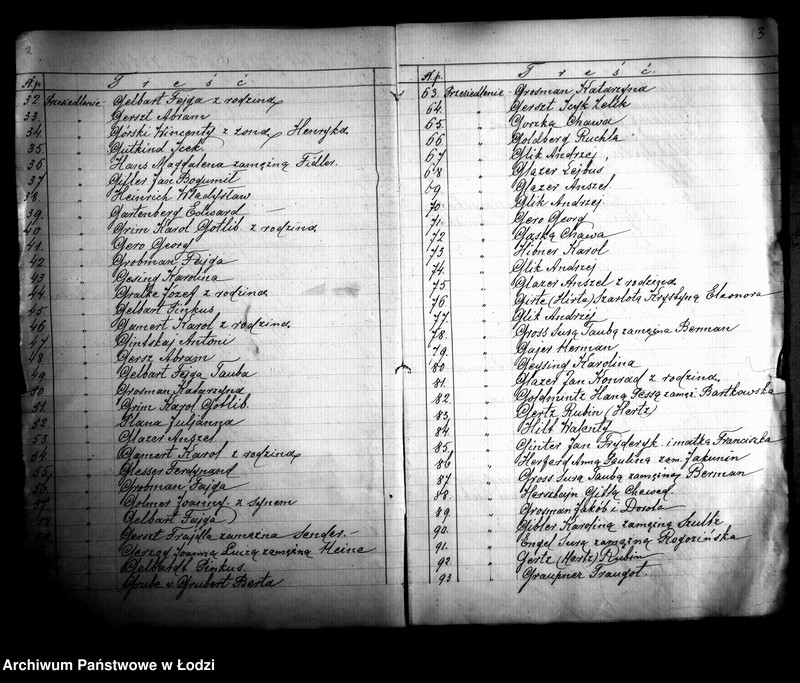 2
Nr.p. Treść.
32. Przesiedlenie - Gelbart Fejga z rodziną
33. " Gerszt Abram
34. " Górski Wincenty z żoną Henryką
35. " Gutkind Icek
36. " Hans Magdalena zamężna Fidler.
37. " Giller Jan Bogumił
38. " Heinrich Władysław
39. " Gartenberg Edward
40. " Grim Karol Gotlib z rodziną
41. " Gero Georg
42. " Grobman Fajga
43. " Gesing Karolina
44. " Gralke Józef z rodziną
45. " Gelbart Pinkus
46. " Gamert Karol z rodziną
47. " Antoni
48. " Gersz Abram
49. " Gelbart Fejga Tauba
50. " Grosman Katarzyna
51. " Grim Karol Gotlib
52. " Julijanna
53. " Glazer Anszel
54. " Gamert Karol z rodziną
55. " Glesser Ferdynand
56. " Grobman Fajga
57. " z synem
58. " Gelbart Fajga
Gerszt Frajdla zamężna Sender.
Joanna Luiza zamężna Heine
Gelbardt Pinkus.
Grube v. Grubert Berta
3
Nr.p. Treść.
63. Przesiedlenie - Grosman Katarzyna
64. " Gerszt Icyk Lelek
65. " Gorzka Chawa
66. " Goldberg Ruchla
67. " Glik Andrzej
68. " Glazer Lejbus
69. " Glazer Anszel
70. " Glik Andrzej
71. " Gero Georg
72. " Gąska Chawa
73. " Hibner Karol
74. " Glik Andrzej
75. " Glazer Anszel z rodziną
76. " Girte (Hirta) Szarlota Krystyna Eleonora
77. " Glik Andrzej
78. " Gross Sura Tauba zamężna Berman
79. " Gajer Herman
80. " Geysing Karolina
81. " Glazer Jan Konrad z rodziną
82. " Goldmintz Hana Gessa zamęż. Bartkowska
83. " Gertz Rubin (Hertz)
84. " Hilt Walenty
85. " Ginter Jan Fryderyk i matka Franciszka
86. " Hergerd Anna Paulina zam. Jakunin
87. " Gross Sura Tauba zamężna Berman
88. " Herszbajn Gitla Chawa
89. " Grosman Jakób i Dorota
90. " Gibler Karolina zamężna Szultz
91. " Engel Sura zamężna Rogozińska
92. " Gertz (Hertz) Rubin
93 " Graupner Traugot.
Archiwum Państwowe w Łodzi